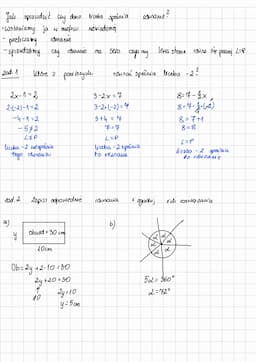 Jak sprawdzić czy dana liczba spełnia równanie?
- wstawiamy ją w miejsce niewiadomej
- obliczamy równanie
- sprawdzamy czy równanie ma sens czyli czy lewa strona równa się prawej L=P
zad.1 Które z poniższych równań spełnia liczba -2?
2x-1=2
2·(-2)-1=2
-4-1=2
-5≠2
L≠P
liczba -2 nie spełnia
tego równania
3-2x=7
3-2·(-2)=7
3+4=7
7=7
L=P
liczba -2 spełnia
to równanie
8=7-½x
8=7-½·(-2)
8=7+1
8=8
L=P
liczba -2 spełnia
to równanie
zad.2 Zapisz odpowiednie równania i
a)
y
obwód=30cm
10cm
Ob=2y+2·10=30
2y+20=30
2y=10
y=5cm
b)
α α α α α
5α=360°
α=72°